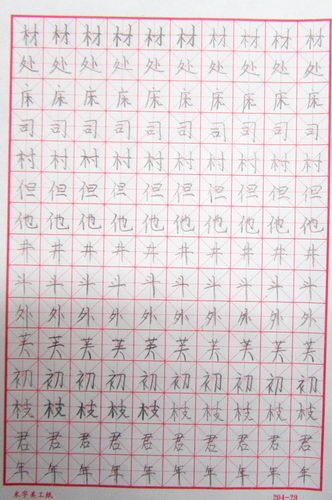 材材材材材材材材材材
处处处处处处处处处处
床床床床床床床床床床
司司司司司司司司司司
村村村村村村村村村村
但但但但但但但但但但
他他他他他他他他他他
井井井井井井井井井井
斗斗斗斗斗斗斗斗斗斗
外外外外外外外外外外
芙芙芙芙芙芙芙芙芙芙
初初初初初初初初初初
枝枝枝枝枝枝枝枝枝枝
君君君君君君君君君君
年年年年年年年年年年
米字美工纸 204-29